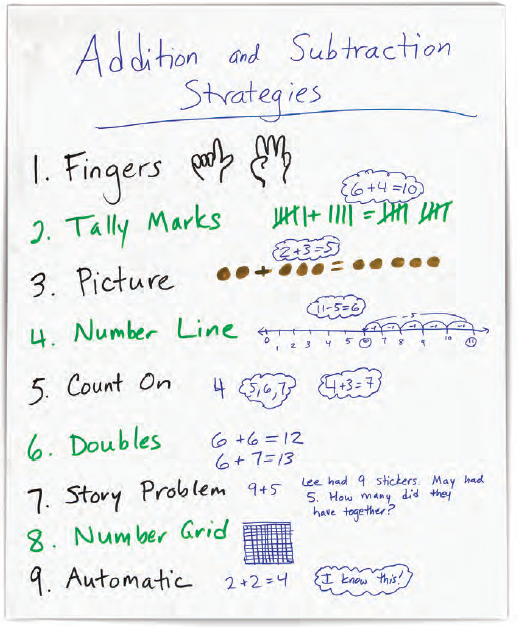 Addition and Subtraction
Strategies
1. Fingers
6+4=10
2. Tally Marks
2+3=5
3. Picture + =
11-5=6
-5
4. Number Line
-1 -1 -1 -1 -1
0 1 2 3 4 5 6 7 8 9 10 11
5. Count On 4 5,6,7 4+3=7
6. Doubles 6+6=12
6+7=13
7. Story Problem 9+5 Lee had 9 stickers. May had
5. How many did they
have together?
8. Number Grid
9. Automatic 2+2=4 I know this!